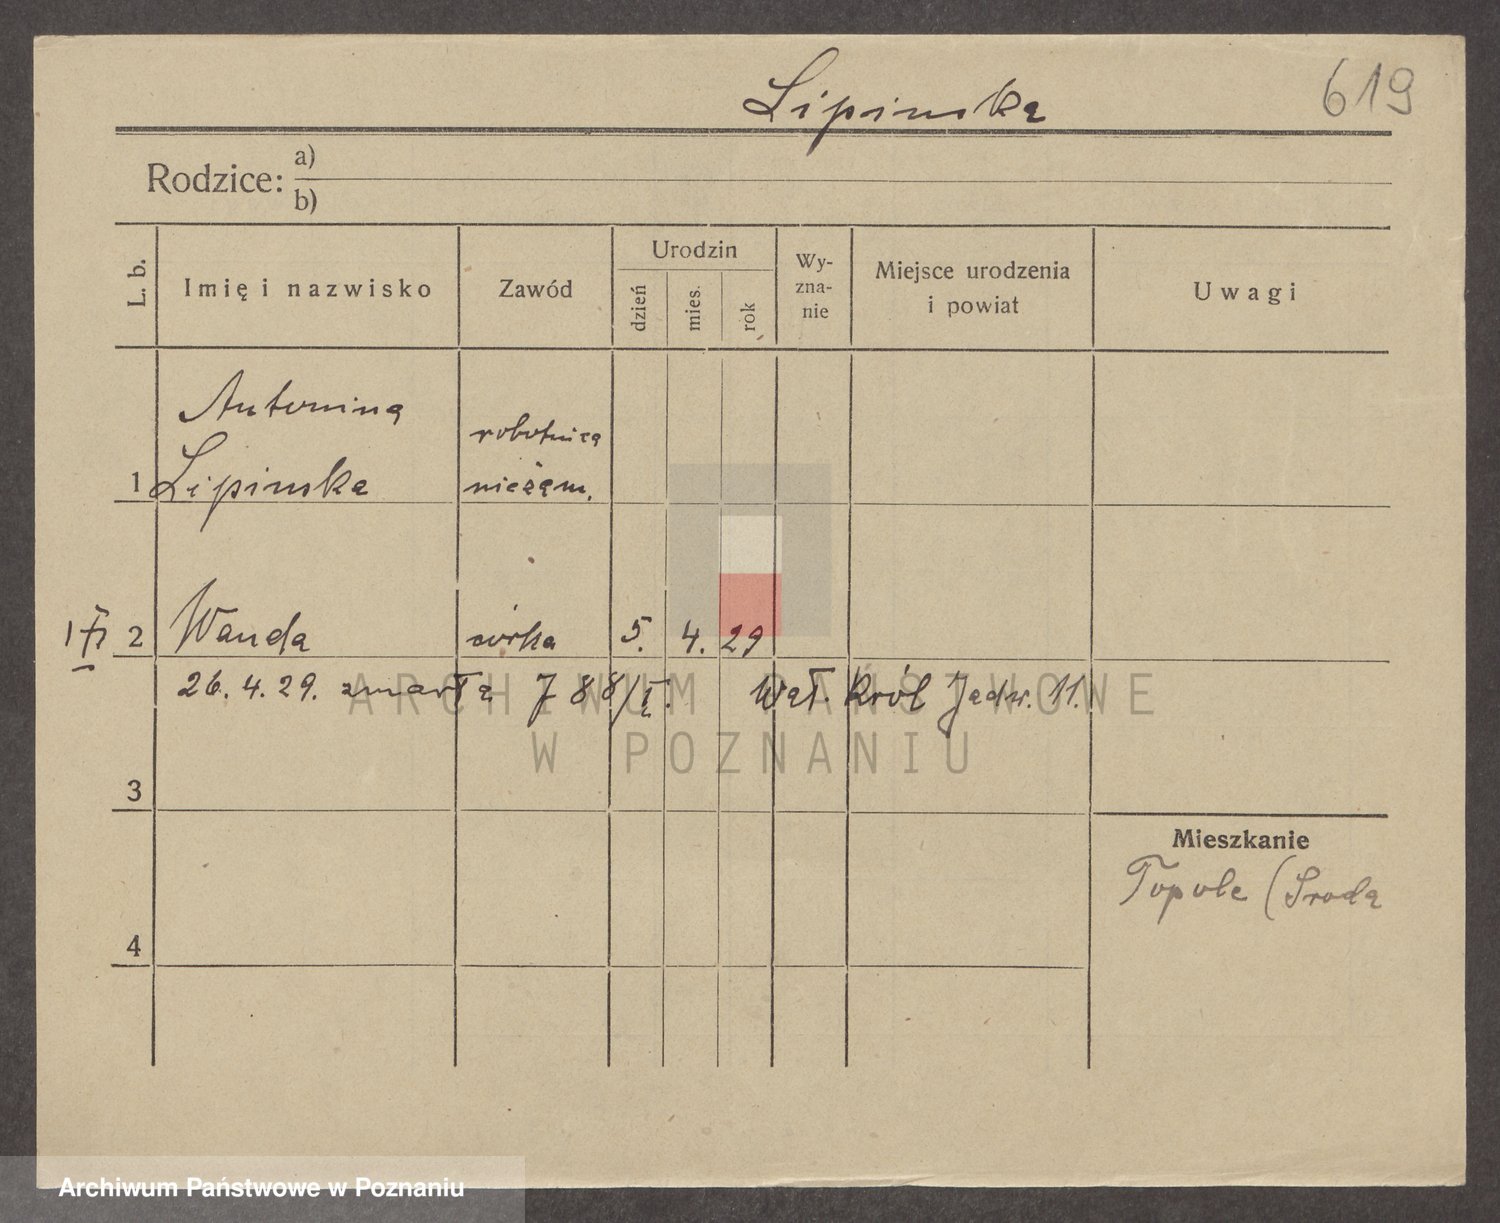 Lipinska
619
Rodzice: a)
b)
L. b.
Imię i nazwisko
Zawód
Urodzin
dzień
mies.
rok
Wy-
zna-
nie
Miejsce urodzenia
i powiat
Uwagi
Antonina
robotnica
1 Lipinska
niezam.
2 Wanda córka 5. 4. 29
26. 4. 29. zmarła J 88/II. Wał. Król Jadw. 11.
3
Mieszkanie
Topole (Sroda
4
ARCHIWUM PAŃSTWOWE
W POZNANIU
Archiwum Państwowe w Poznaniu